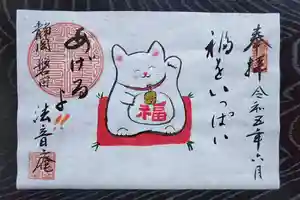 奉拝
令和五年六月
福をいっぱい
福
あげる
よ!!
静岡
法音庵